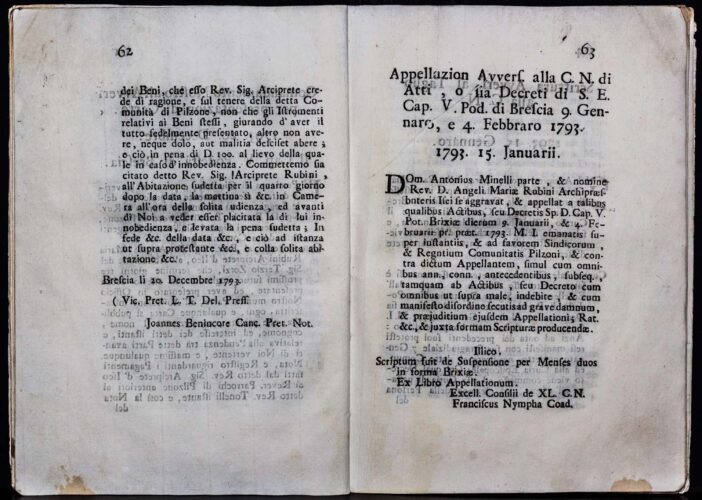 62
dei Beni, che esso Rev. Sig. Arciprete cre-
de di ragione, e sul tenere della detta Co-
munità di Pilzone, non che gli Istromenti
relativi ai Beni stessi, giurando d'aver il
tutto fedelmente presentato, altro non ave-
re, neque dolo, aut malitia desciset abere;
e ciò, in pena di D. 100. al lievo della qua-
le in caso d'innobedienza. Commettemo sia
citato detto Rev. Sig. Arciprete Rubini,
all'Abitazione sudetta per il quarto giorno
dopo la data, la mattina sì &c. in Came-
ra all'ora della solita udienza, ed avanti
di Noi a veder esser placitata la di lui in-
nobedienza, e levata la pena sudetta; In
fede &c. della data &c., e ciò ad istanza
ut supra protestante &c. e colla solita abi-
tazione &c.
Brescia li 20. Decembre 1793.
( Vic. Pret. L. T. Del. Press.
Joannes Benincore Canc. Pret. Not.
63
Appellazion Avvers. alla C. N. di
Atti, o sia Decreti di S. E.
Cap. V. Pod. di Brescia 9. Gen-
naro, e 4. Febbraro 1793.
1793. 15. Januarii.
DOm. Antonius Minelli parte, & nomine
Rev. D. Angeli Mariæ Rubini Archipræs-
bnteris Isei se aggravat, & appellat a talibus
qualibus Actibus, seu Decretis Sp. D. Cap. V.
Pot. Brixiæ dierum 9. Januarii, & 4. Fe-
bruarii pr. præt. 1793. M. I. emanatis su-
per iustantiis, & ad favorem Sindicorum,
& Regntium Comunitatis Pilzoni, & con-
tra dictum Appellantem, simul cum omni-
bus ann., conn., antecedentibus, subseq.
tamquam ab Actibus, seu Decreto cum
omnibus ut supra male, indebite, & cum
manifesto disordine secutis ad grave damnum,
& præjuditium ejusdem Appellationis; Rat.
&c., & juxta formam Scripturæ producendæ.
Illico.
Scriptum fuit de Suspensione per Menses duos
in forma Brixiæ.
Ex Libro Appellationum.
Excell. Consilii de XL. C. N.
Franciscus Nympha Coad.